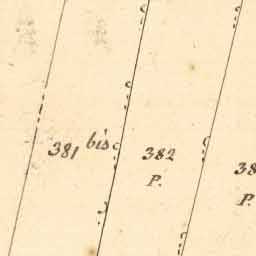 381 bis
382
P.
38
P.